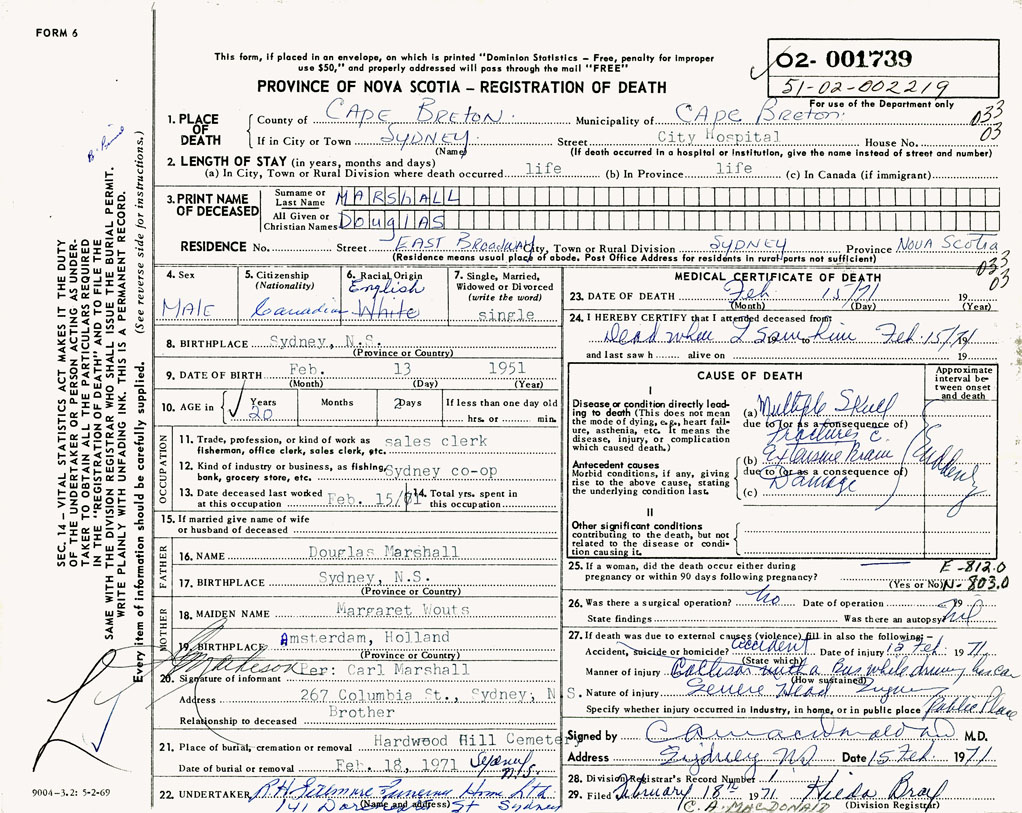 FORM 6
This form, if placed in an envelope, on which is printed "Dominion Statistics – Free, penalty for improper
use $50," and properly addressed will pass through the mail "FREE"
02- 001739
51-02-002219
For use of the Department only
PROVINCE OF NOVA SCOTIA – REGISTRATION OF DEATH
033
03
1. PLACE OF DEATH
County of CAPE BRETON. Municipality of CAPE BRETON.
If in City or Town SYDNEY. Street City Hospital House No.
(Name) (If death occurred in a hospital or institution, give the name instead of street and number)
2. LENGTH OF STAY (in years, months and days)
(a) In City, Town or Rural Division where death occurred life (b) In Province life (c) In Canada (if immigrant)
3. PRINT NAME OF DECEASED
Surname or Last Name MARShALL
All Given or Christian Names DOuglAS
RESIDENCE No. Street EAST BROADWAY City, Town or Rural Division SYDNEY Province NOVA SCOTIA
(Residence means usual place of abode. Post Office Address for residents in rural parts not sufficient)
033
03
4. Sex MALE
5. Citizenship (Nationality) Canadian
6. Racial Origin English White
7. Single, Married, Widowed or Divorced (write the word) single
8. BIRTHPLACE Sydney, N.S.
(Province or Country)
9. DATE OF BIRTH Feb. 13 1951
(Month) (Day) (Year)
10. AGE in Years 20 Months 2 Days If less than one day old hrs. or min.
OCCUPATION
11. Trade, profession, or kind of work as fisherman, office clerk, sales clerk, etc. sales clerk
12. Kind of industry or business, as fishing, bank, grocery store, etc. Sydney co-op
13. Date deceased last worked at this occupation Feb. 15/71
14. Total yrs. spent in this occupation
15. If married give name of wife or husband of deceased
FATHER
16. NAME Douglas Marshall
17. BIRTHPLACE Sydney, N.S.
(Province or Country)
MOTHER
18. MAIDEN NAME Margaret Wouts
19. BIRTHPLACE Amsterdam, Holland
(Province or Country)
20. Signature of informant Per: Carl Marshall
Address 267 Columbia St., Sydney, N.S.
Relationship to deceased Brother
21. Place of burial, cremation or removal Hardwood Hill Cemetery
Date of burial or removal Feb. 18, 1971 Sydney N.S.
22. UNDERTAKER R.H. Fillmore Funeral Home Ltd.
(Name and address)
141 St Sydney
MEDICAL CERTIFICATE OF DEATH
23. DATE OF DEATH Feb 15/71 19
(Month) (Day) (Year)
24. I HEREBY CERTIFY that I attended deceased from
Dead when I saw him Feb. 15/71 19
and last saw h alive on 19
CAUSE OF DEATH
Approximate interval between onset and death
I
Disease or condition directly leading to death (This does not mean the mode of dying, e.g., heart failure, asthenia, etc. It means the disease, injury, or complication which caused death.)
(a) Multiple Skull
due to (or as a consequence of)
Fractures c.
Antecedent causes
Morbid conditions, if any, giving rise to the above cause, stating the underlying condition last.
(b) Extensive Brain
due to (or as a consequence of)
Damage
(c)
II
Other significant conditions contributing to the death, but not related to the disease or condition causing it.
E-812.0
N-803.0
25. If a woman, did the death occur either during pregnancy or within 90 days following pregnancy? (Yes or No)
26. Was there a surgical operation? No Date of operation 19
State findings Was there an autopsy? Nil
27. If death was due to external causes (violence) fill in also the following:–
Accident, suicide or homicide? Accident Date of injury 15 Feb. 1971
(State which)
Manner of injury Collision with a Bus while driving his car
(How sustained)
Nature of injury Severe Head Injury
Specify whether injury occurred in industry, in home, or in public place Public Place
Signed by C A MacDonald M.D.
Address Sydney NS Date 15 Feb 1971
28. Division Registrar's Record Number 1
29. Filed February 18th 1971 Hilda Bray
C. A. MACDONALD (Division Registrar)
SEC. 14 – VITAL STATISTICS ACT MAKES IT THE DUTY
OF THE UNDERTAKER OR PERSON ACTING AS UNDER-
TAKER TO OBTAIN ALL THE PARTICULARS REQUIRED
IN THE "REGISTRATION OF DEATH" AND TO FILE THE
SAME WITH THE DIVISION REGISTRAR WHO SHALL ISSUE THE BURIAL PERMIT.
WRITE PLAINLY WITH UNFADING INK. THIS IS A PERMANENT RECORD.
Every item of information should be carefully supplied. (See reverse side for instructions.)
9004-3.2: 5-2-69